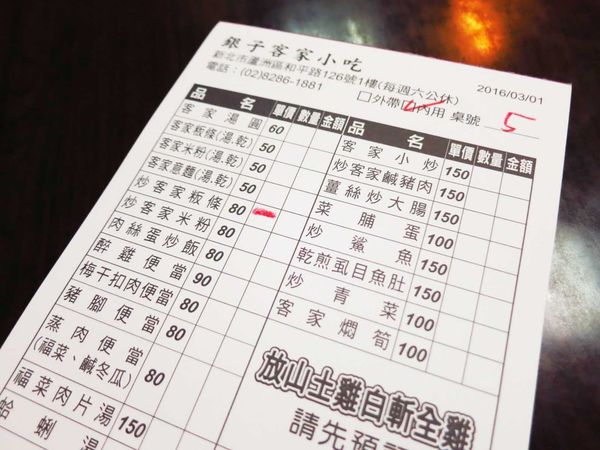 銀子客家小吃
新北市蘆洲區和平路126號1樓(每週六公休)
電話:(02)8286-1881
2016/03/01
□外帶□內用 桌號 5
品名 單價 數量 金額
客家湯圓 60
客家粄條(湯,乾) 50
客家米粉(湯,乾) 50
客家意麵(湯,乾) 50
炒客家粄條 80
炒客家米粉 80
肉絲蛋炒飯 80
醉雞便當 90
梅干扣肉便當 80
豬腳便當 80
蒸肉便當
(福菜、鹹冬瓜) 80
福菜肉片湯 150
蛤蜊湯
品名 單價 數量 金額
客家小炒 150
炒客家鹹豬肉 150
薑絲炒大腸 150
菜脯蛋 100
炒鯊魚 150
乾煎虱目魚肚 150
炒青菜 100
客家燜筍 100
放山土雞白斬全雞
請先預訂